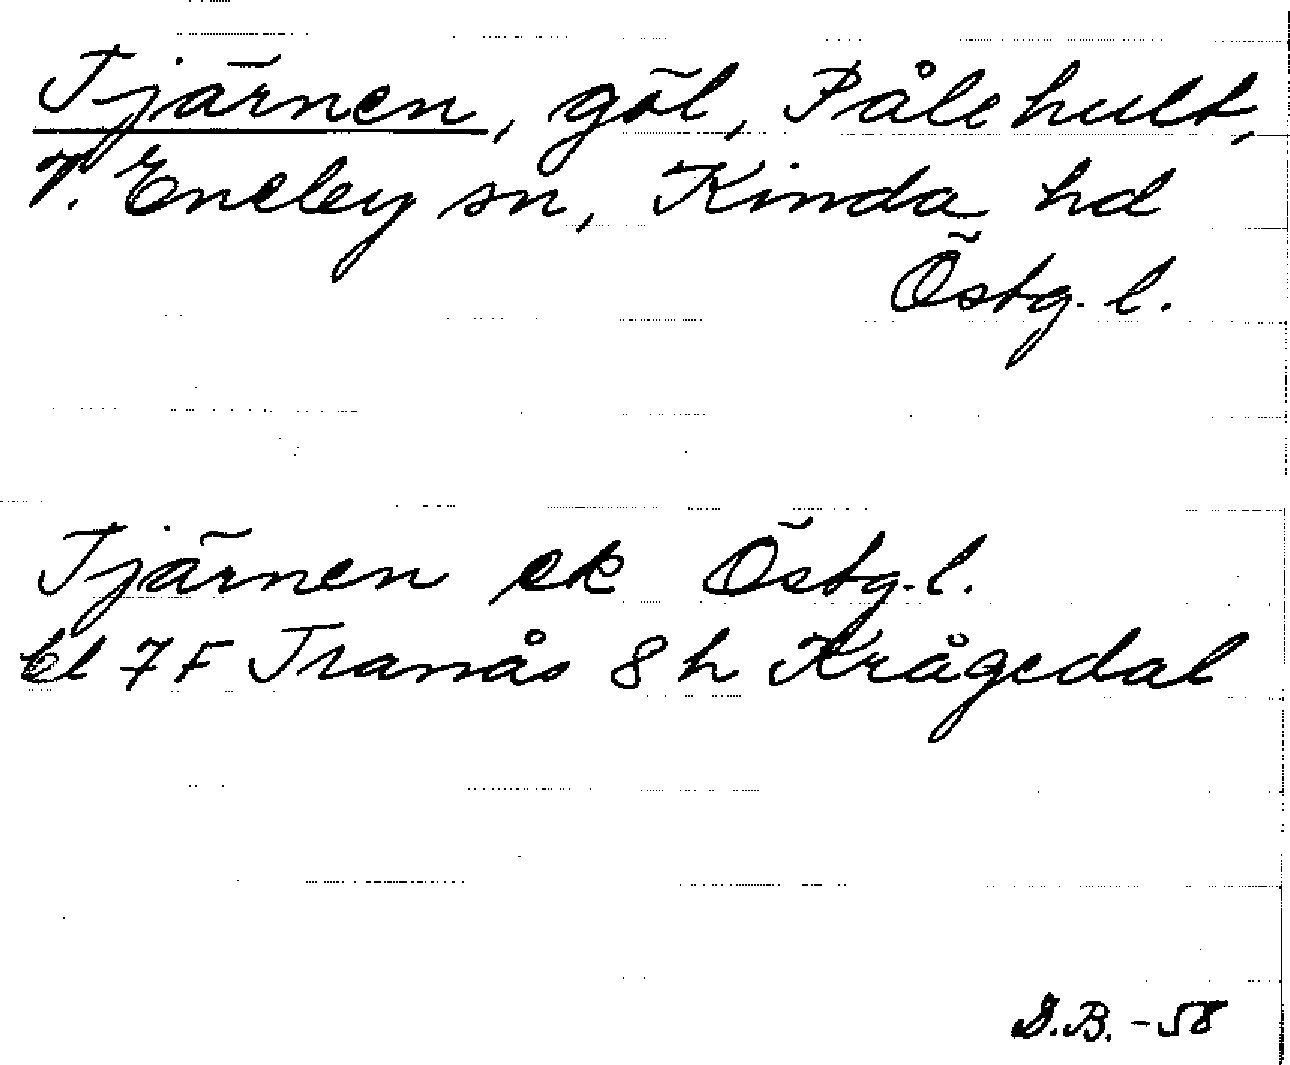 Tjärnen, göl, Pålehult,
V. Eneby sn, Kinda hd
Östg. l.
Tjärnen ek Östg. l.
bl 7 F Tranås 8 h Krågedal
D.B. -58